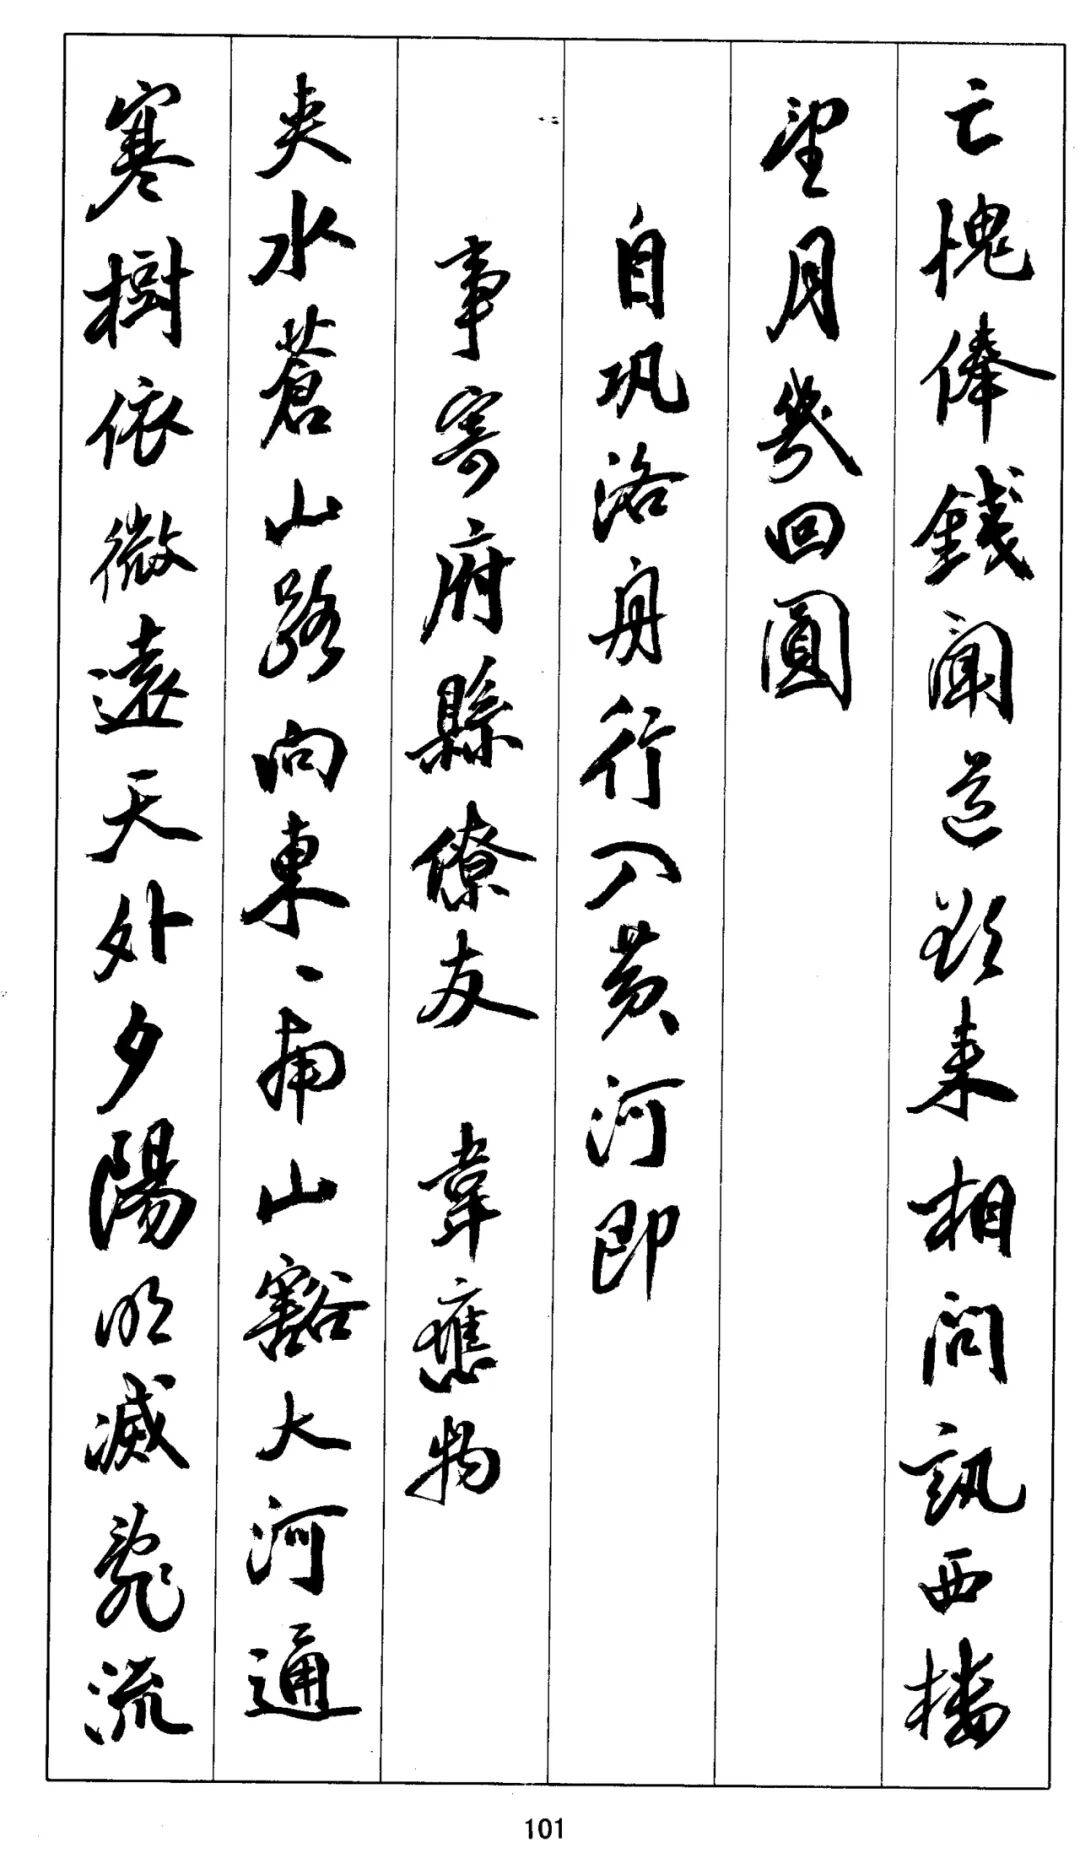 亡愧俸錢聞道欲来相問訊西樓
望月幾回圓
自巩洛舟行入黄河即
事寄府縣僚友 韋應物
夾水蒼山路向東、南山豁大河通
寒樹依微遠天外夕陽明滅亂流
101